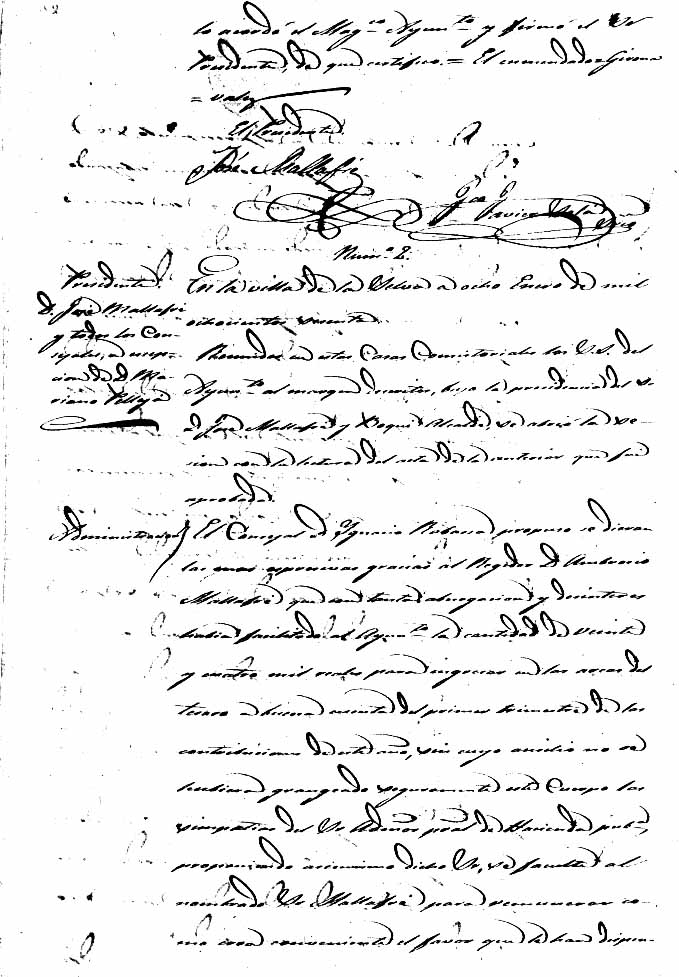 lo acordó el Mag.co Ayunt.to y firmó el Sr
Presidente, de que certifico. = El enmendado = Girona
= vale
El Presidente
José Mallafré
Num.o 2.
Presidente.
D. José Mallafré
y todos los Con-
cejales, a excep-
cion de D. Ma-
riano Pellejà
En la villa de la Selva a ocho Enero de mil
ochocientos
Reunidos en estas Casas Consistoriales los S.S. del
Ayunt.to al margen descritos, bajo la presidencia del Sr
D. José Mallafré y Roque Alcalde, se abrió la se-
sion con la lectura del acta de la anterior que fué
aprobada.
Administracion
El Concejal D. Ignacio propuso se dieran
las mas espresivas gracias al Regidor D. Ambrosio
Mallafré que con tanta abnegacion y desinteres
habia facilitado al Ayunt.to la cantidad de veinte
y cuatro mil reales para ingresar en las arcas del
tesoro a buena cuenta del primer trimestre de las
contribuciones de este año, sin cuyo auxilio no se
hubiera grangeado seguramente este Cuerpo las
simpatias del Sr Admor pral de Hacienda pub.ca,
proponiendo asimismo dicho Sr, se faculte al
nombrado Sr Mallafré para remunerar co-
mo crea conveniente el favor que le han dispen-